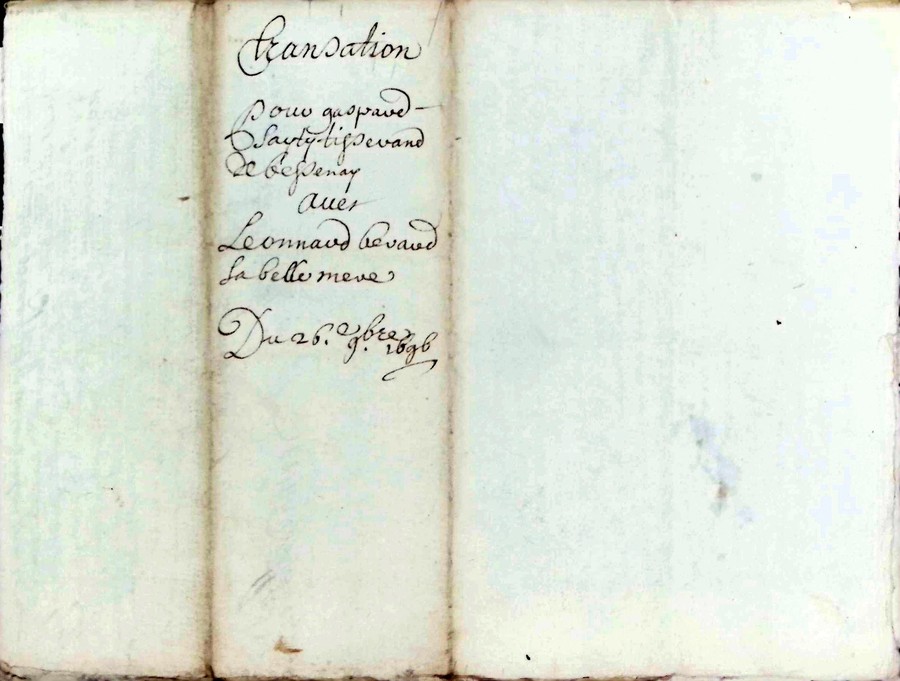 transation
pour gaspard
tisserand
de bessenay
avec
Leonnard berard
sa belle mere
Du 26. 9.bre 1696